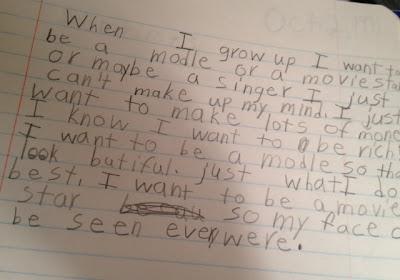 When I grow up I want to
be a modle or a moviestar
or maybe a singer I just
can't make up my mind. I just
want to make lots of mone
I know I want to be rich!
I want to be a modle so tha
look butiful. just what I do
best, I want to be a movie
star so my face c
be seen everywere.